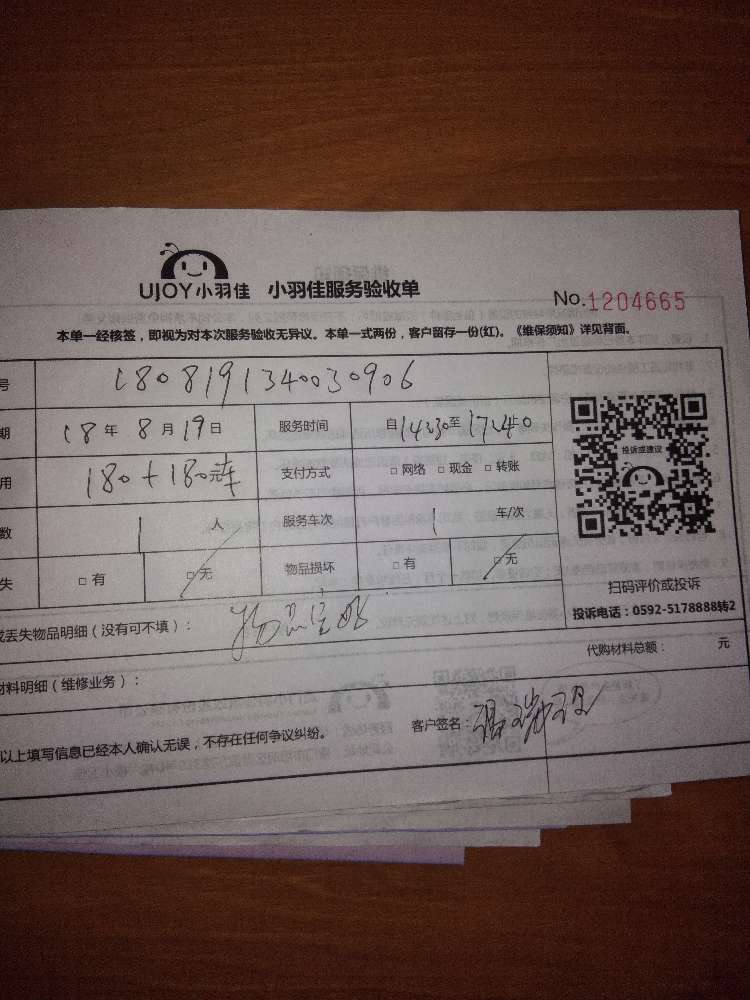 UJOY小羽佳 小羽佳服务验收单 No.1204665
本单一经核签，即视为对本次服务验收无异议。本单一式两份，客户留存一份(红)。《维保须知》详见背面。
号 1808191340030906
期 18年 8月19日 服务时间 自14:30至17:40
用 180+180元 支付方式 □网络 □现金 □转账
数 1 人 服务车次 1 车/次
失 □有 □无 物品损坏 □有 □无
投诉或建议
扫码评价或投诉
投诉电话：0592-5178888转2
或丢失物品明细（没有可不填）：
代购材料总额： 元
材料明细（维修业务）：
以上填写信息已经本人确认无误，不存在任何争议纠纷。 客户签名：